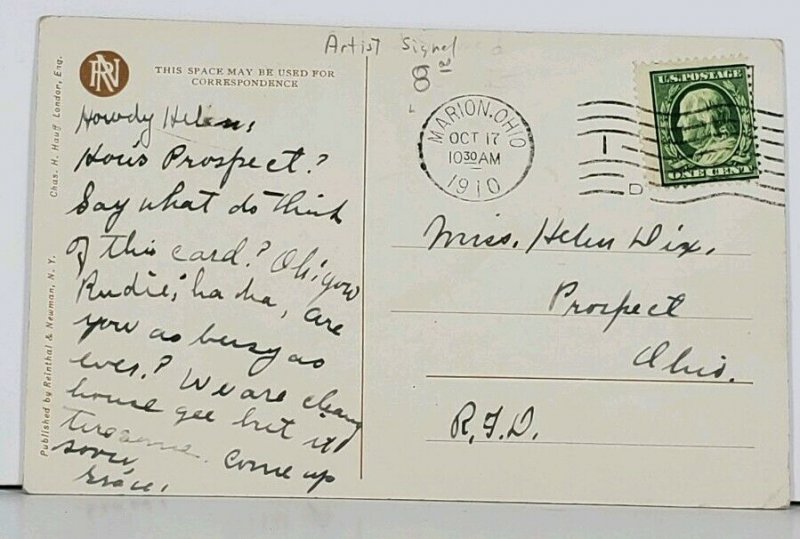 Artist Signed
RN
THIS SPACE MAY BE USED FOR
CORRESPONDENCE
Chas. H. Hauff, London, Eng.
Published by Reinthal & Newman, N. Y.
Howdy Helen,
How's Prospect?
Say what do think
of this card? Oh, you
Rudie, ha ha, are
you as busy as
ever? We are cleaning
house gee but it
tiresome. Come up
soon,
Grace.
MARION, OHIO
OCT 17
10 30 AM
1910
I
D
U.S. POSTAGE
ONE CENT
Miss. Helen Dix,
Prospect
Ohio.
R.F.D.